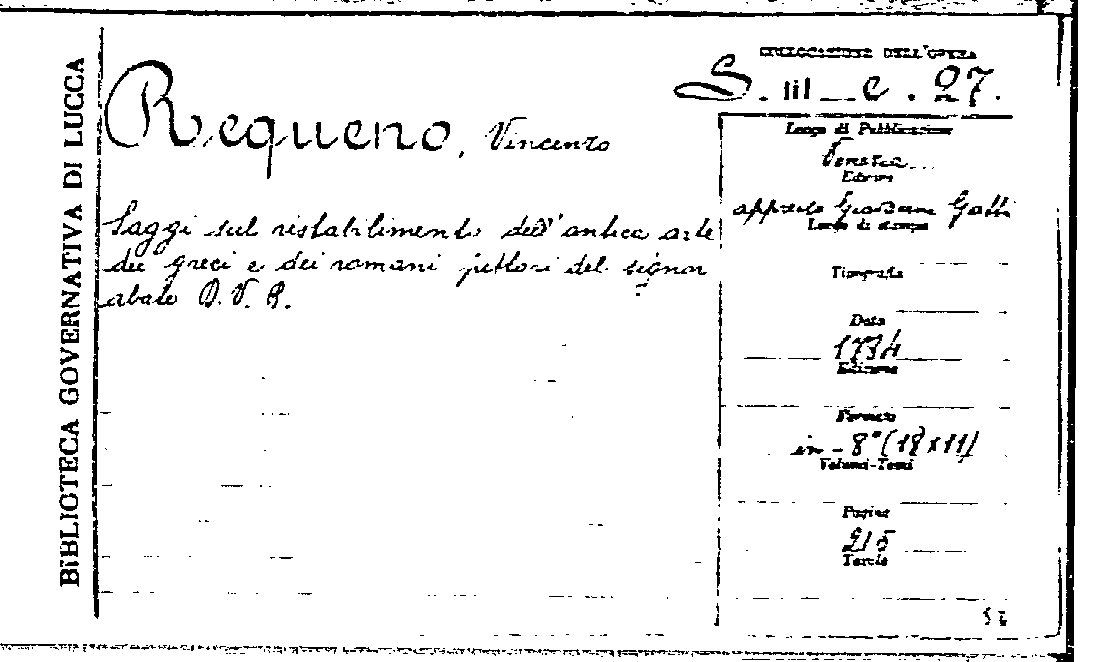 BIBLIOTECA GOVERNATIVA DI LUCCA
COLLOCAZIONE DELL'OPERA
S. III - C. 27.
Requeno, Vincenzo
Saggi sul ristabilimento dell'antica arte
dei greci e dei romani pittori del signor
abate D. V. R.
Luogo di Pubblicazione
Venezia
Editore
appresso Giovanni Gatti
Luogo di stampa
Tipografia
Data
Edizione
Formato
in - 8° (18x11)
Volumi-Tomi
Pagine
215
Tavole